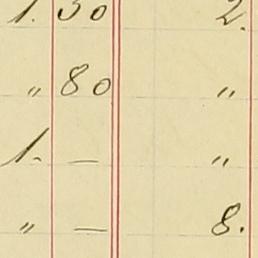 1. 50 2.
" 80 "
1. — "
" — 8.